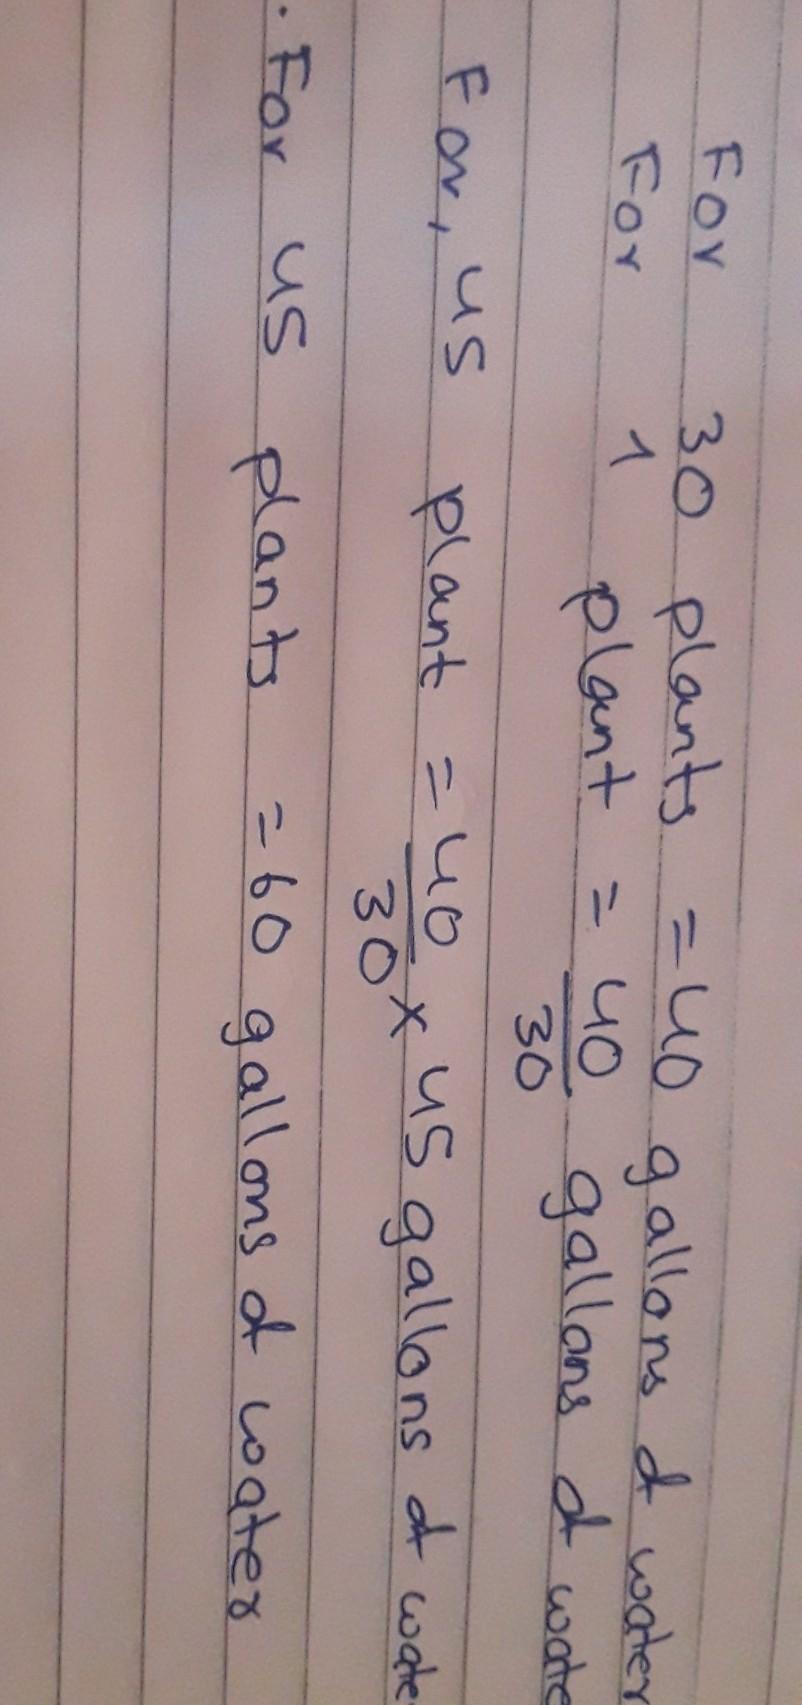 For 30 plants = 40 gallons of water
For 1 plant = 40/30 gallons of wate
For, 45 plant = 40/30 × 45 gallons of wate
. For 45 plants = 60 gallons of water